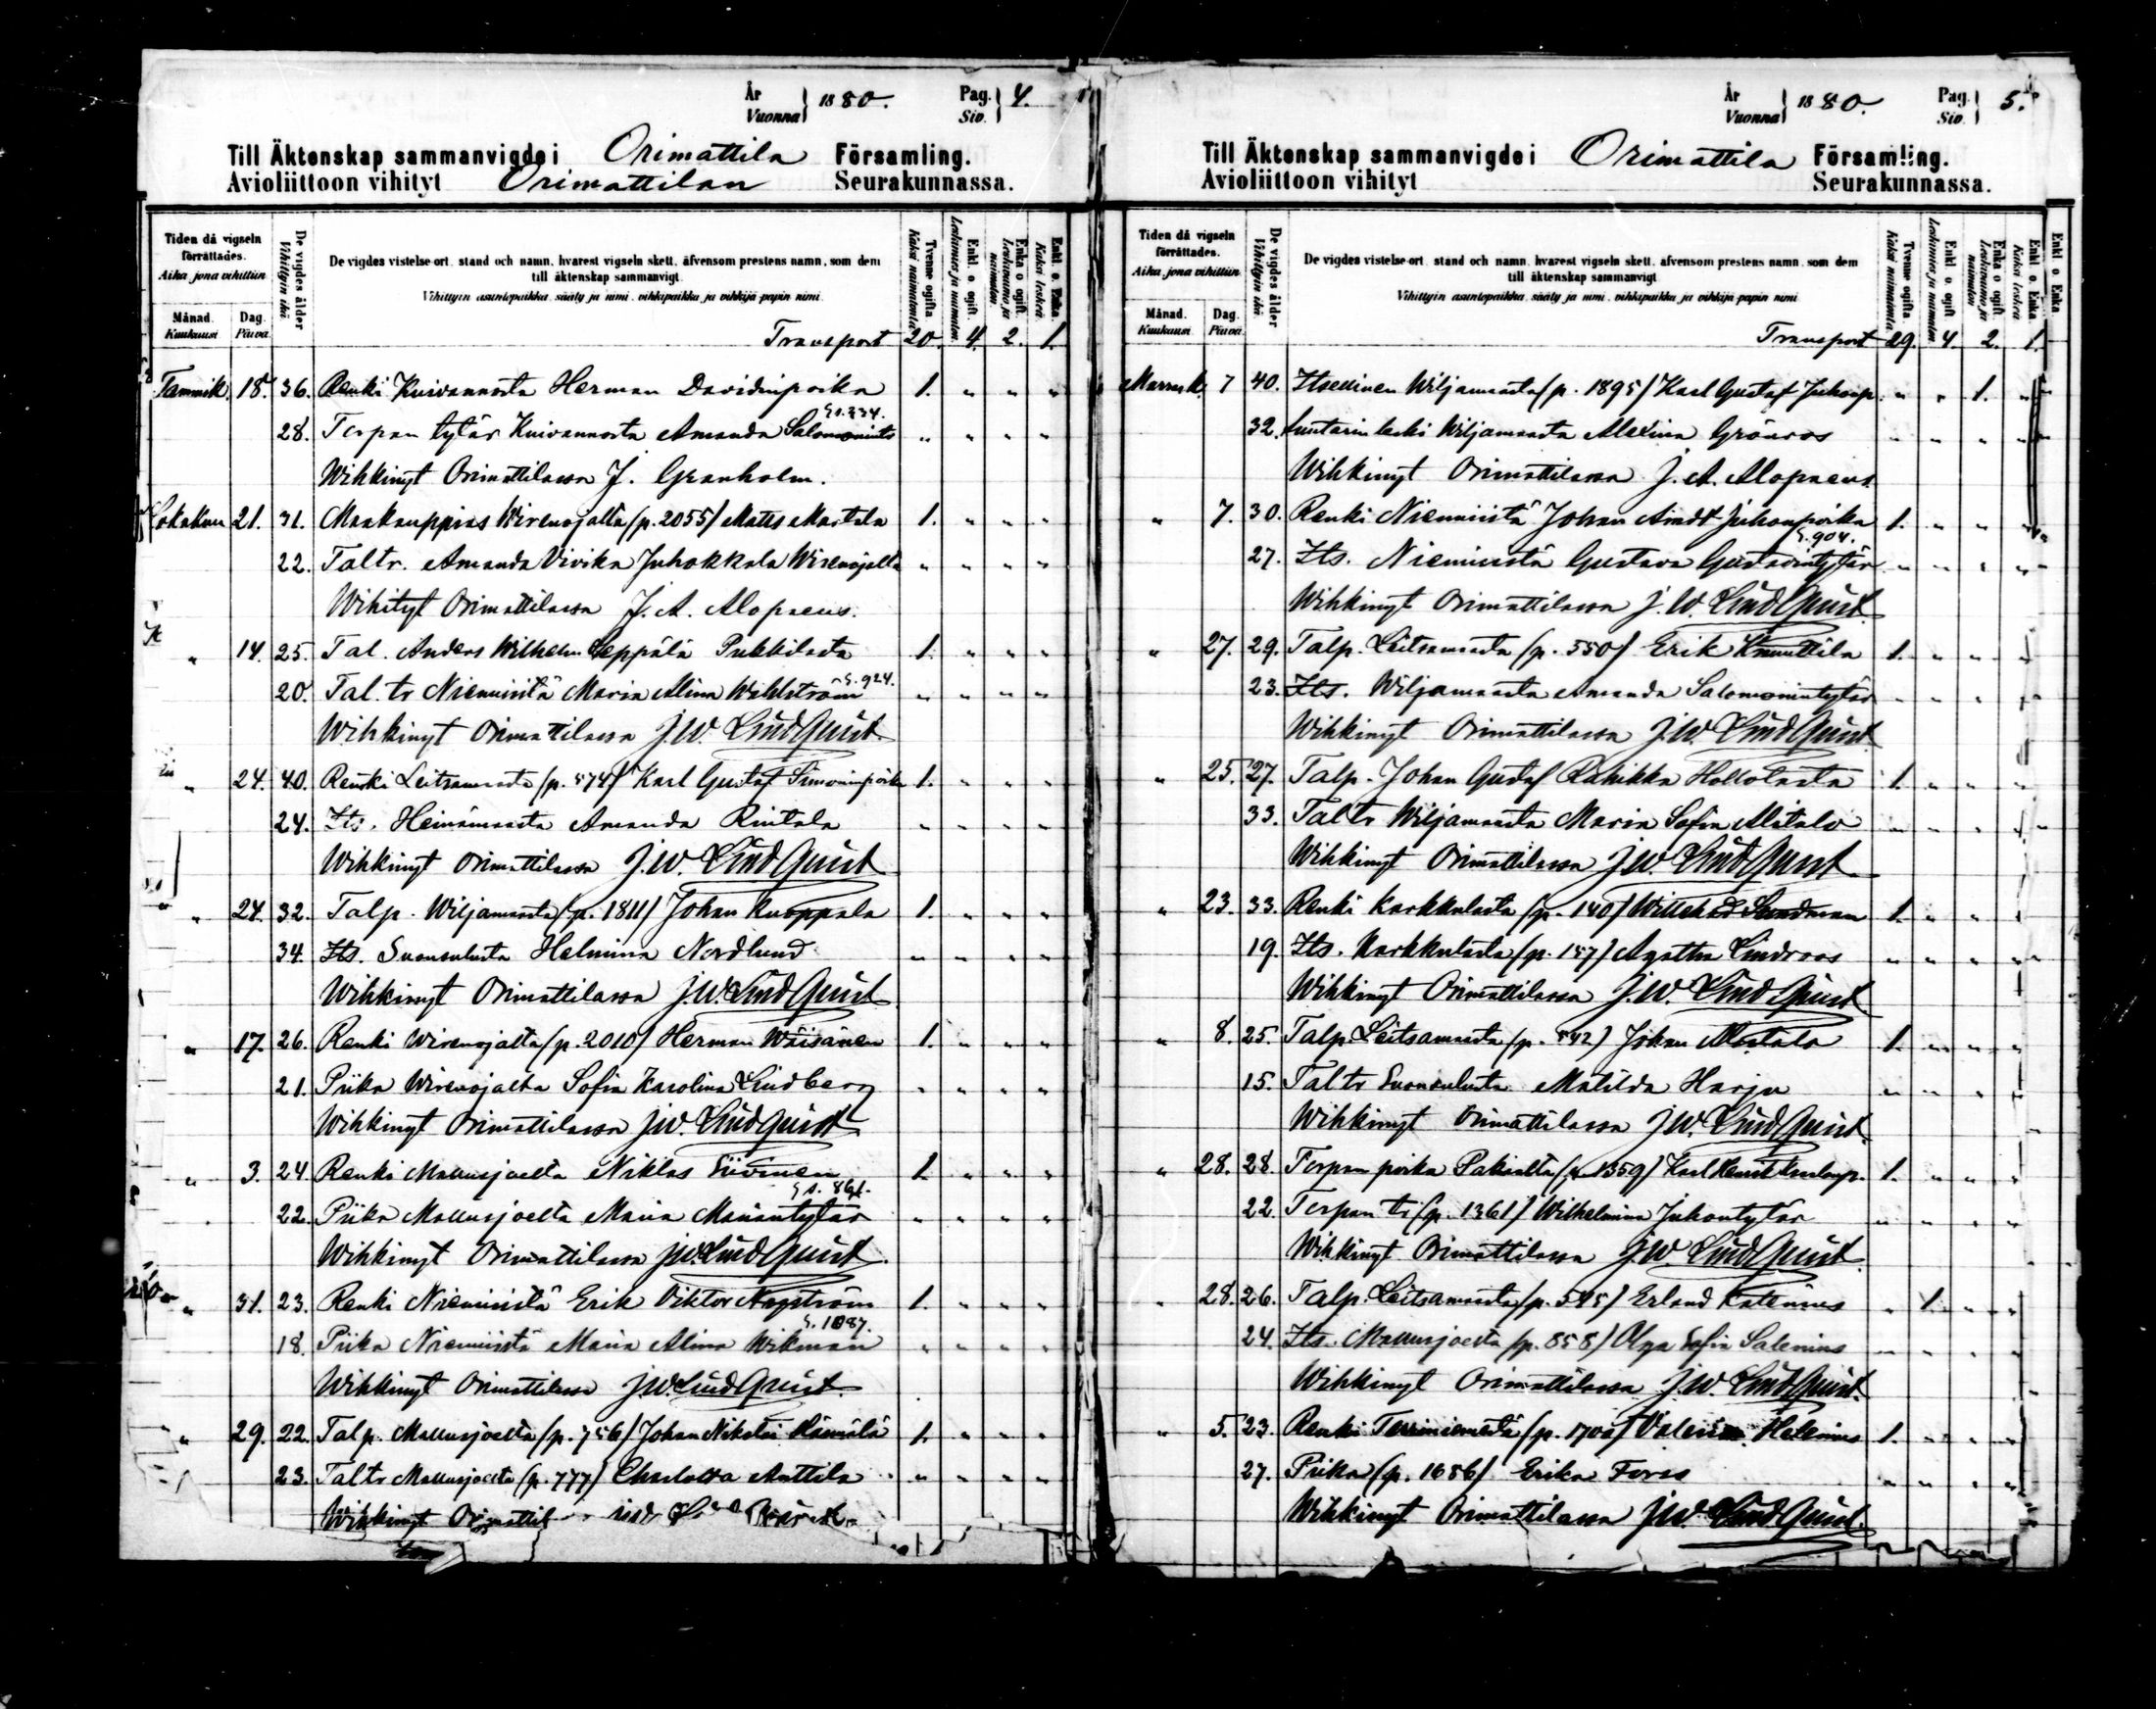 År
Vuonna } 1880.
Pag.
Siv. } 4.
Till Äktenskap sammanvigde i Orimattila Församling.
Avioliittoon vihityt Orimattilan Seurakunnassa.
Tiden då vigseln förrättades.
Aika jona vihittiin
Månad. Kuukausi
Dag. Päivä
De vigdes ålder
Vihittyin ikä
De vigdes vistelse ort, stand och namn, hvarest vigseln skett, äfvensom prestens namn, som dem
till äktenskap sammanvigt.
Vihittyin asuntopaikka, sääty ja nimi, vihkipaikka ja vihkijä papin nimi.
Tvenne ogifta
Kaksi naimatonta
Enkl. o. ogift
Leskimies ja naimaton
Enka o ogift.
Leskivaimo ja naimaton
Enkl. o. Enka
Kaksi leskeä
Transport 20. 4. 2. 1.
Tammik. 18. 36. Renki Kuivannosta Herman Davidinpoika 1. " " "
28. Torpan tytär Kuivannosta Amanda Salomonints S. 234. " " " "
Wihkinyt Orimattilassa J. Granholm.
Lokakuu 21. 31. Maakauppias Wirenojalta (p. 2055) Matts Martola 1. " " "
22. Tal tr. Amanda Vivika Juhokkala Wirenojalta " " " "
Wihityt Orimattilassa J. A. Alopaeus.
" 14. 25. Tal. Anders Wilhelm Seppälä Pukkilasta 1. " " "
20. Tal. tr Niemiistä Maria Alina Wahlström S. 924. " " " "
Wihkinyt Orimattilassa J. W. Lindquist
" 24. 40. Renki Leitsamasta (p. 574) Karl Gustaf Simoninpoika 1. " " "
24. Its. Heinämaasta Amanda Rintala " " " "
Wihkinyt Orimattilassa J. W. Lindquist
" 24. 32. Talp. Wiljamaasta (p. 1811) Johan Kuoppala 1. " " "
34. Its. Suonsulusta Helmina Nordlund " " " "
Wihkinyt Orimattilassa J. W. Lindquist
" 17. 26. Renki Wirenojalta (p. 2010) Herman Wäisänen 1. " " "
21. Piika Wirenojalta Sofia Karolina Lindberg " " " "
Wihkinyt Orimattilassa J. W. Lindquist
" 3. 24. Renki Mallusjoelta Niklas Siivinen 1. " " "
22. Piika Mallusjoelta Maria Mariantytär S. 861. " " " "
Wihkinyt Orimattilassa J. W. Lindquist
" 31. 23. Renki Niemiistä Erik Viktor Nygström 1. " " "
18. Piika Niemiistä Maria Alina Wikman S. 1087. " " " "
Wihkinyt Orimattilassa J. W. Lindquist
" 29. 22. Talp. Mallusjoelta (p. 756) Johan Nikolai Hämälä 1. " " "
23. Tal tr Mallusjoelta (p. 777) Charlotta Anttila " " " "
Wihkinyt
År
Vuonna } 1880.
Pag.
Siv. } 5.
Till Äktenskap sammanvigde i Orimattila Församling.
Avioliittoon vihityt Seurakunnassa.
Tiden då vigseln förrättades.
Aika jona vihittiin
Månad. Kuukausi
Dag. Päivä
De vigdes ålder
Vihittyin ikä
De vigdes vistelse ort, stand och namn, hvarest vigseln skett, äfvensom prestens namn, som dem
till äktenskap sammanvigt.
Vihittyin asuntopaikka, sääty ja nimi, vihkipaikka ja vihkijä papin nimi.
Tvenne ogifta
Kaksi naimatonta
Enkl. o. ogift
Leskimies ja naimaton
Enka o ogift.
Leskivaimo ja naimaton
Enkl. o. Enka
Kaksi leskeä
Enkl. o. Enka
Transport 29. 4. 2. 1.
Marrask. 7 40. Itsellinen Wiljamaasta (p. 1895) Karl Gustaf Juhonp. " " 1. "
32. Suutarin leski Wiljamaasta Alexina Grönroos " " " "
Wihkinyt Orimattilassa J. A. Alopaeus.
" 7. 30. Renki Niemiistä Johan Juhonpoika 1. " " "
27. Its. Niemiistä Gustava Gustavintytär S. 904. " " " "
Wihkinyt Orimattilassa J. W. Lindquist
" 27. 29. Talp. Leitsamasta (p. 550) Erik Knuuttila 1. " " "
23. Its. Wiljamaasta Amanda Salomonintytär " " " "
Wihkinyt Orimattilassa J. W. Lindquist
" 25. 27. Talp. Johan Gustaf Rahikka Hollolasta 1. " " "
33. Tal tr Wiljamaasta Maria Sofia Alitalo " " " "
Wihkinyt Orimattilassa J. W. Lindquist
" 23. 33. Renki Karkkulasta (p. 140) Sundman 1. " " "
19. Its. Karkkulasta (p. 157) Agatha Lindroos " " " "
Wihkinyt Orimattilassa J. W. Lindquist
" 8. 25. Talp. Leitsamasta (p. 542) Johan 1. " " "
15. Tal tr Suonsulusta Matilda Harju " " " "
Wihkinyt Orimattilassa J. W. Lindquist
" 28. 28. Torpan poika Pakaalta (p. 1359) Karl 1. " " "
22. Torpan tr (p. 1361) Wilhelmina Juhontytär " " " "
Wihkinyt Orimattilassa J. W. Lindquist
" 28. 26. Talp. Leitsamasta (p. 545) Erland Katenius " 1. " "
24. Its. Mallusjoelta (p. 858) Olga Sofia Salenius " " " "
Wihkinyt Orimattilassa J. W. Lindquist
" 5. 23. Renki Terriniemestä (p. 1701) Helenius 1. " " "
27. Piika (p. 1686) Erika Forss " " " "
Wihkinyt Orimattilassa J. W. Lindquist